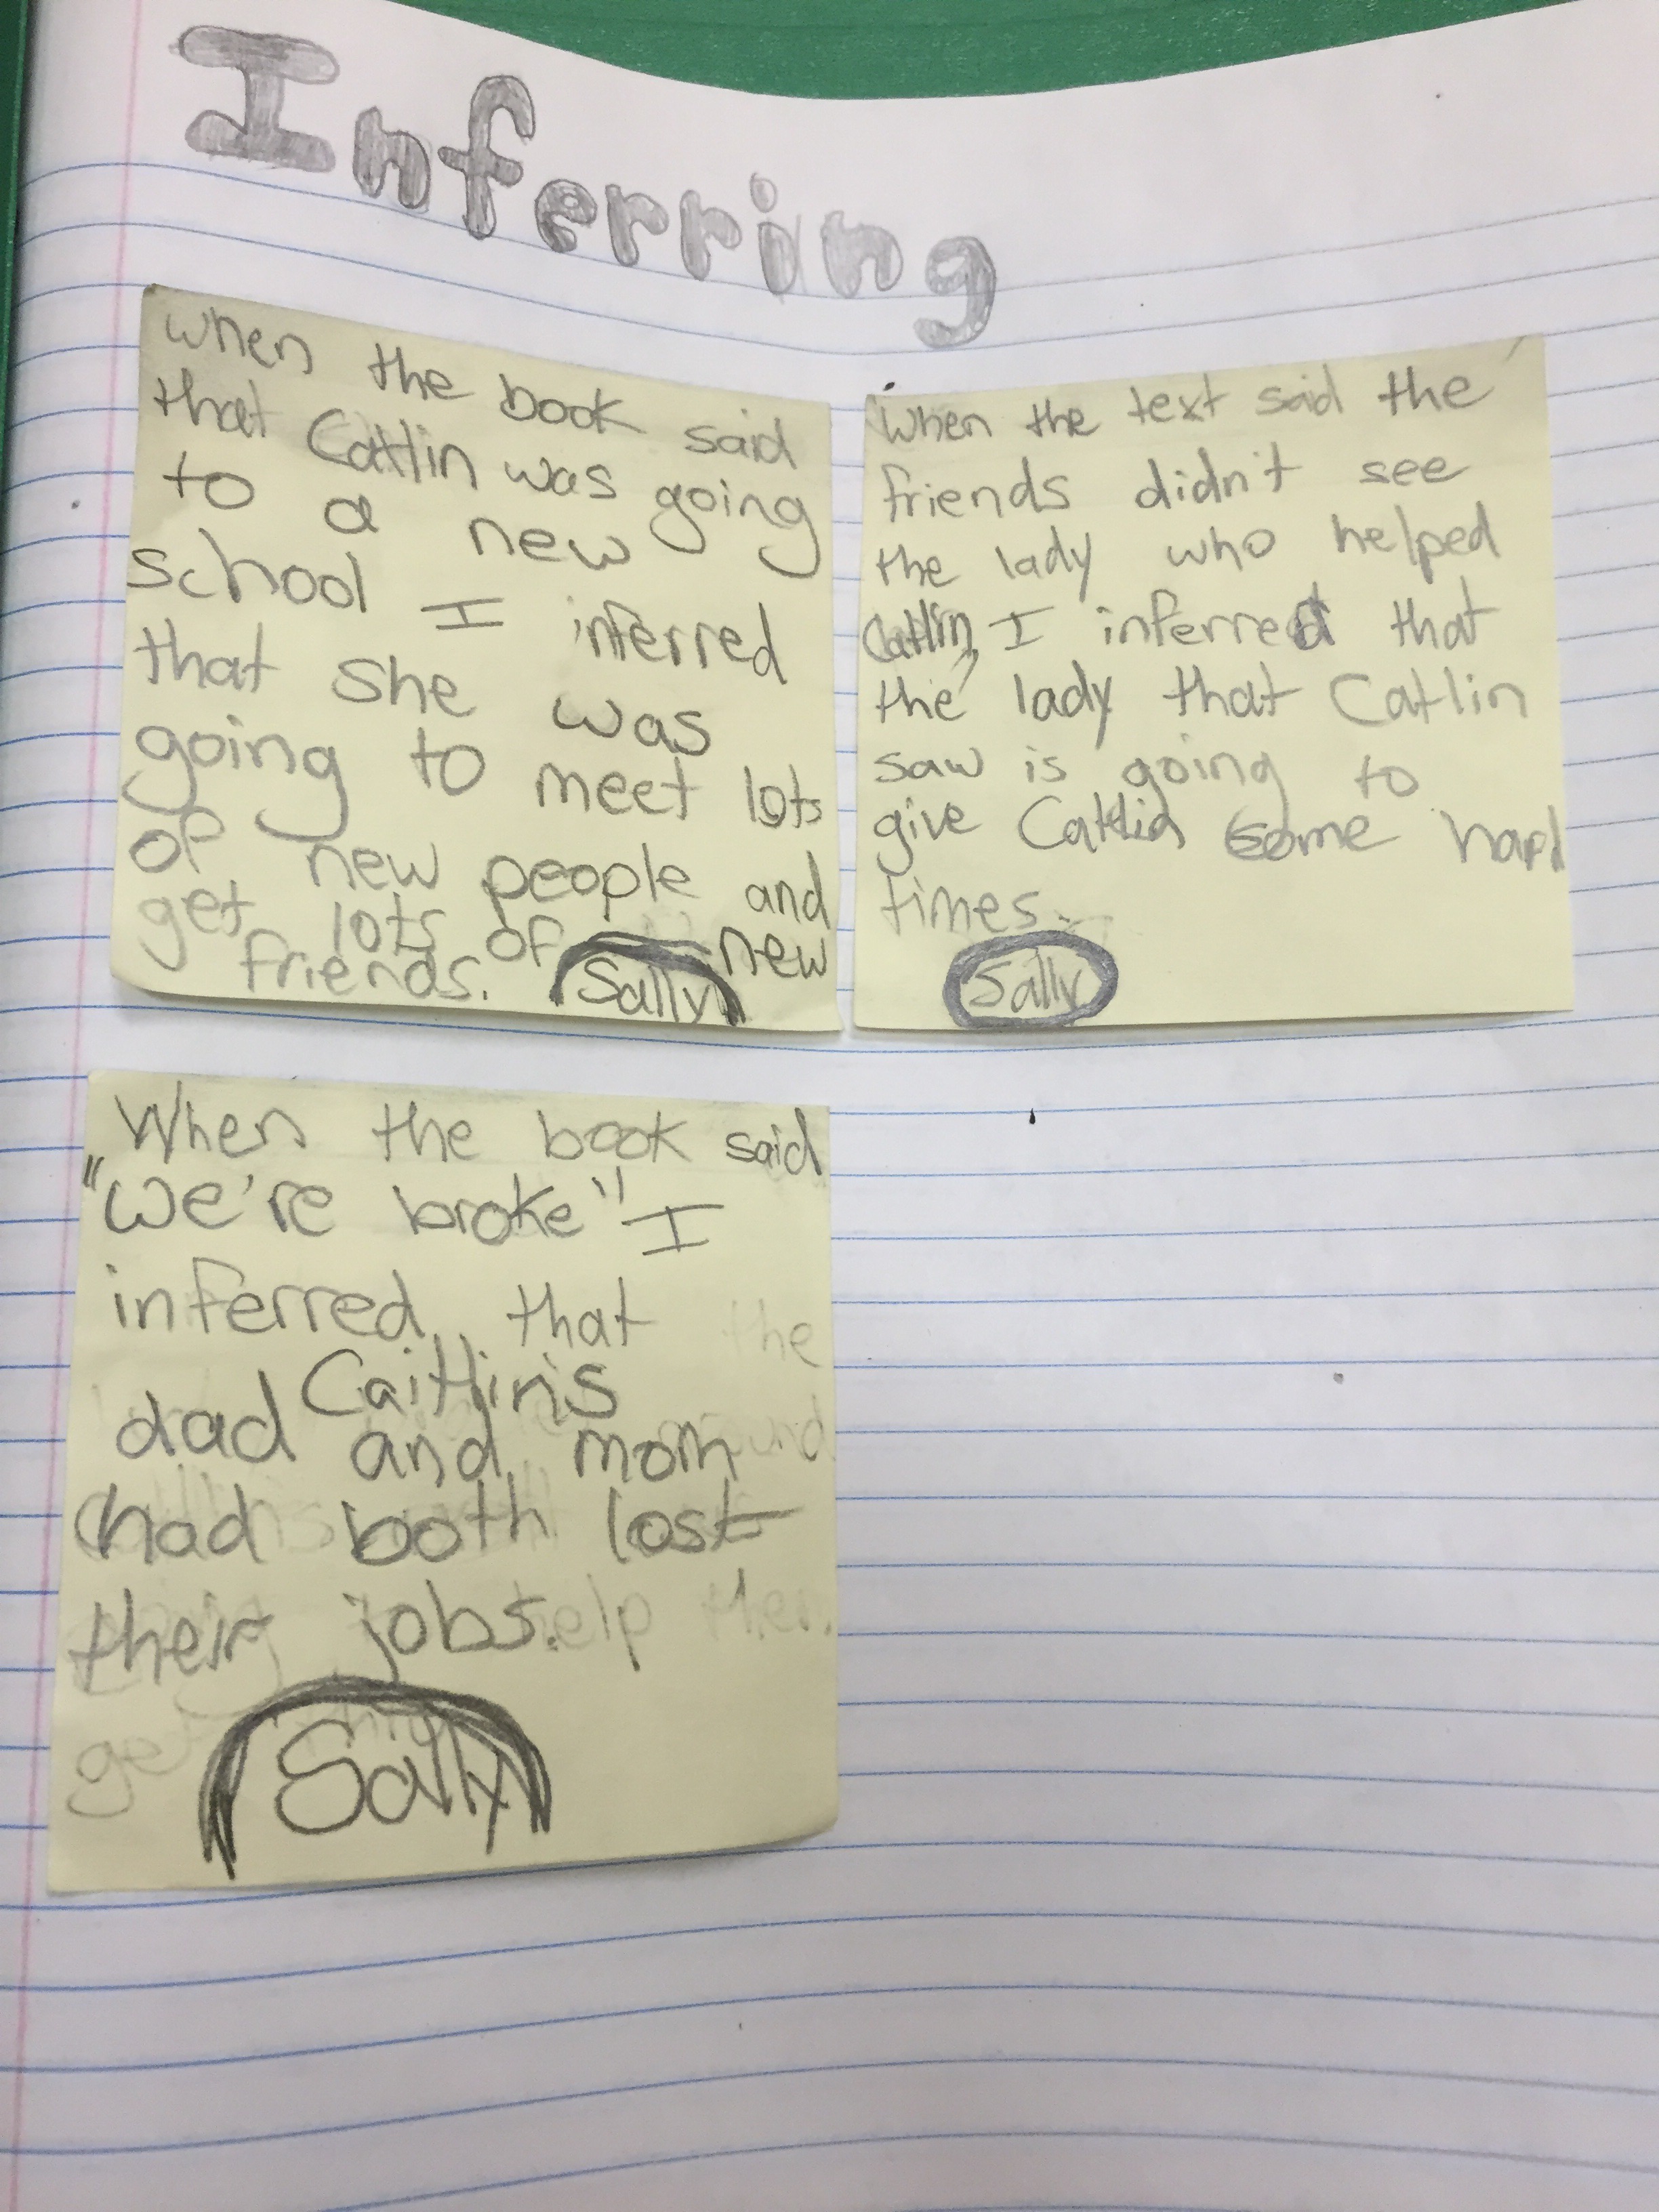 Inferring
when the book said
that Catlin was going
to a new
school I inferred
that she was
going to meet lots
of new people and
get lots of new
friends. Sally
When the text said the
friends didn't see
the lady who helped
Catlin, I inferred that
the lady that Catlin
saw is going to
give Catlin some hard
times.
Sally
When the book said
"We're broke" I
inferred that
Caitlin's
dad and mom
had both lost
their jobs.
Sally